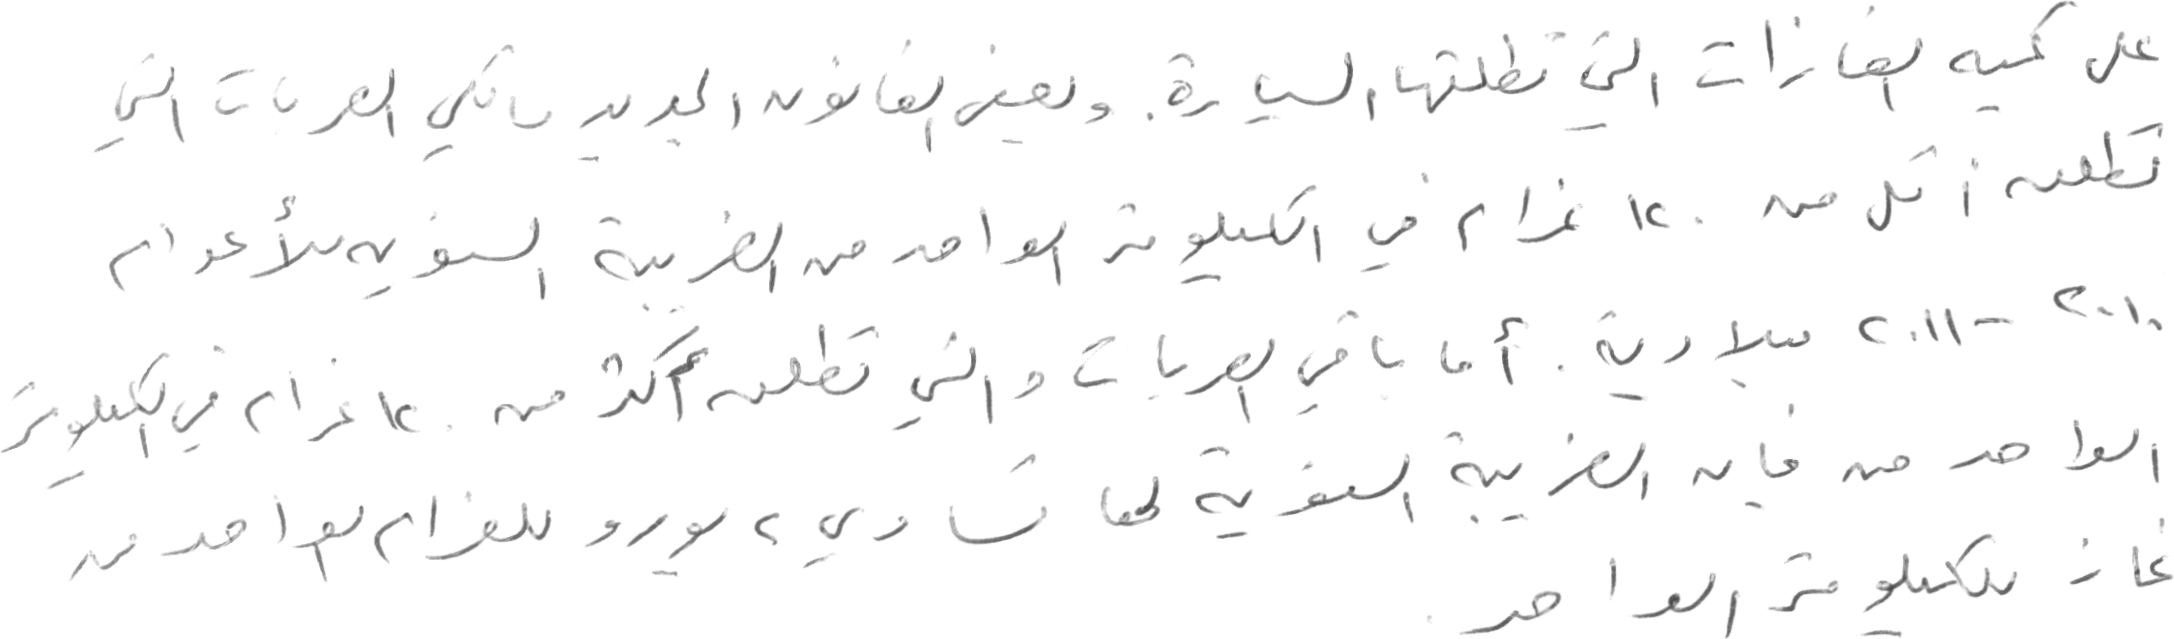 على كميه الغازات التي تطلقها السيارة. ويعفي القانون الجديد مالكي العربات التي
تطلق أقل من ١٢٠ غرام في الكيلومتر الواحد من الضريبة السنويه للأعوام
٢٠١٠ - ٢٠١١ ميلادية. أما باقي العربات والتي تطلق أكثر من ١٢٠ غرام في الكيلومتر
الواحد من فإن الضريبة السنوية لها تساوي ٢ يورو للغرام لواحد من
غاز للكيلومتر الواحد.